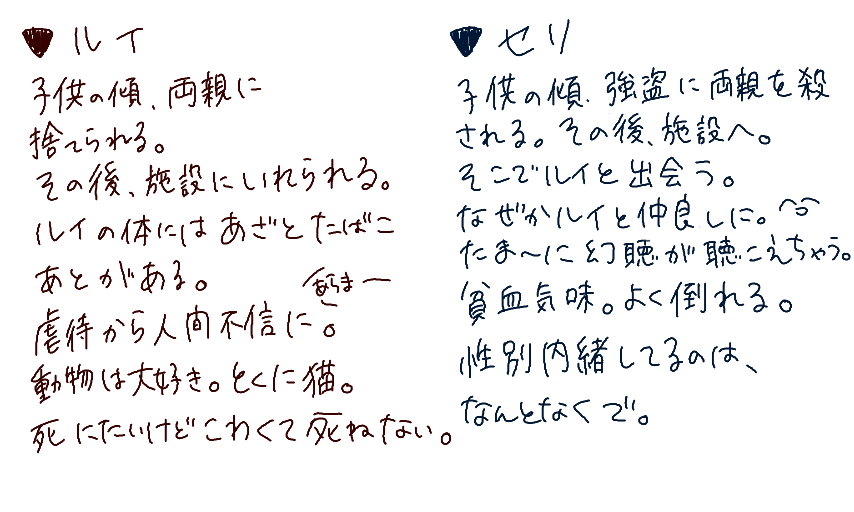 ▼ルイ
子供の傾、両親に
捨てられる。
その後、施設にいれられる。
ルイの体にはあざとたばこ
あとがある。
あらまー
虐待から人間不信に。
動物は大好き。とくに猫。
死にたいけどこわくて死ねない。
▼セリ
子供の傾、強盗に両親を殺
される。その後、施設へ。
そこでルイと出会う。
なぜかルイと仲良しに。
たま〜に幻聴が聴こえちゃう。
貧血気味。よく倒れる。
性別内緒してるのは、
なんとなくで。